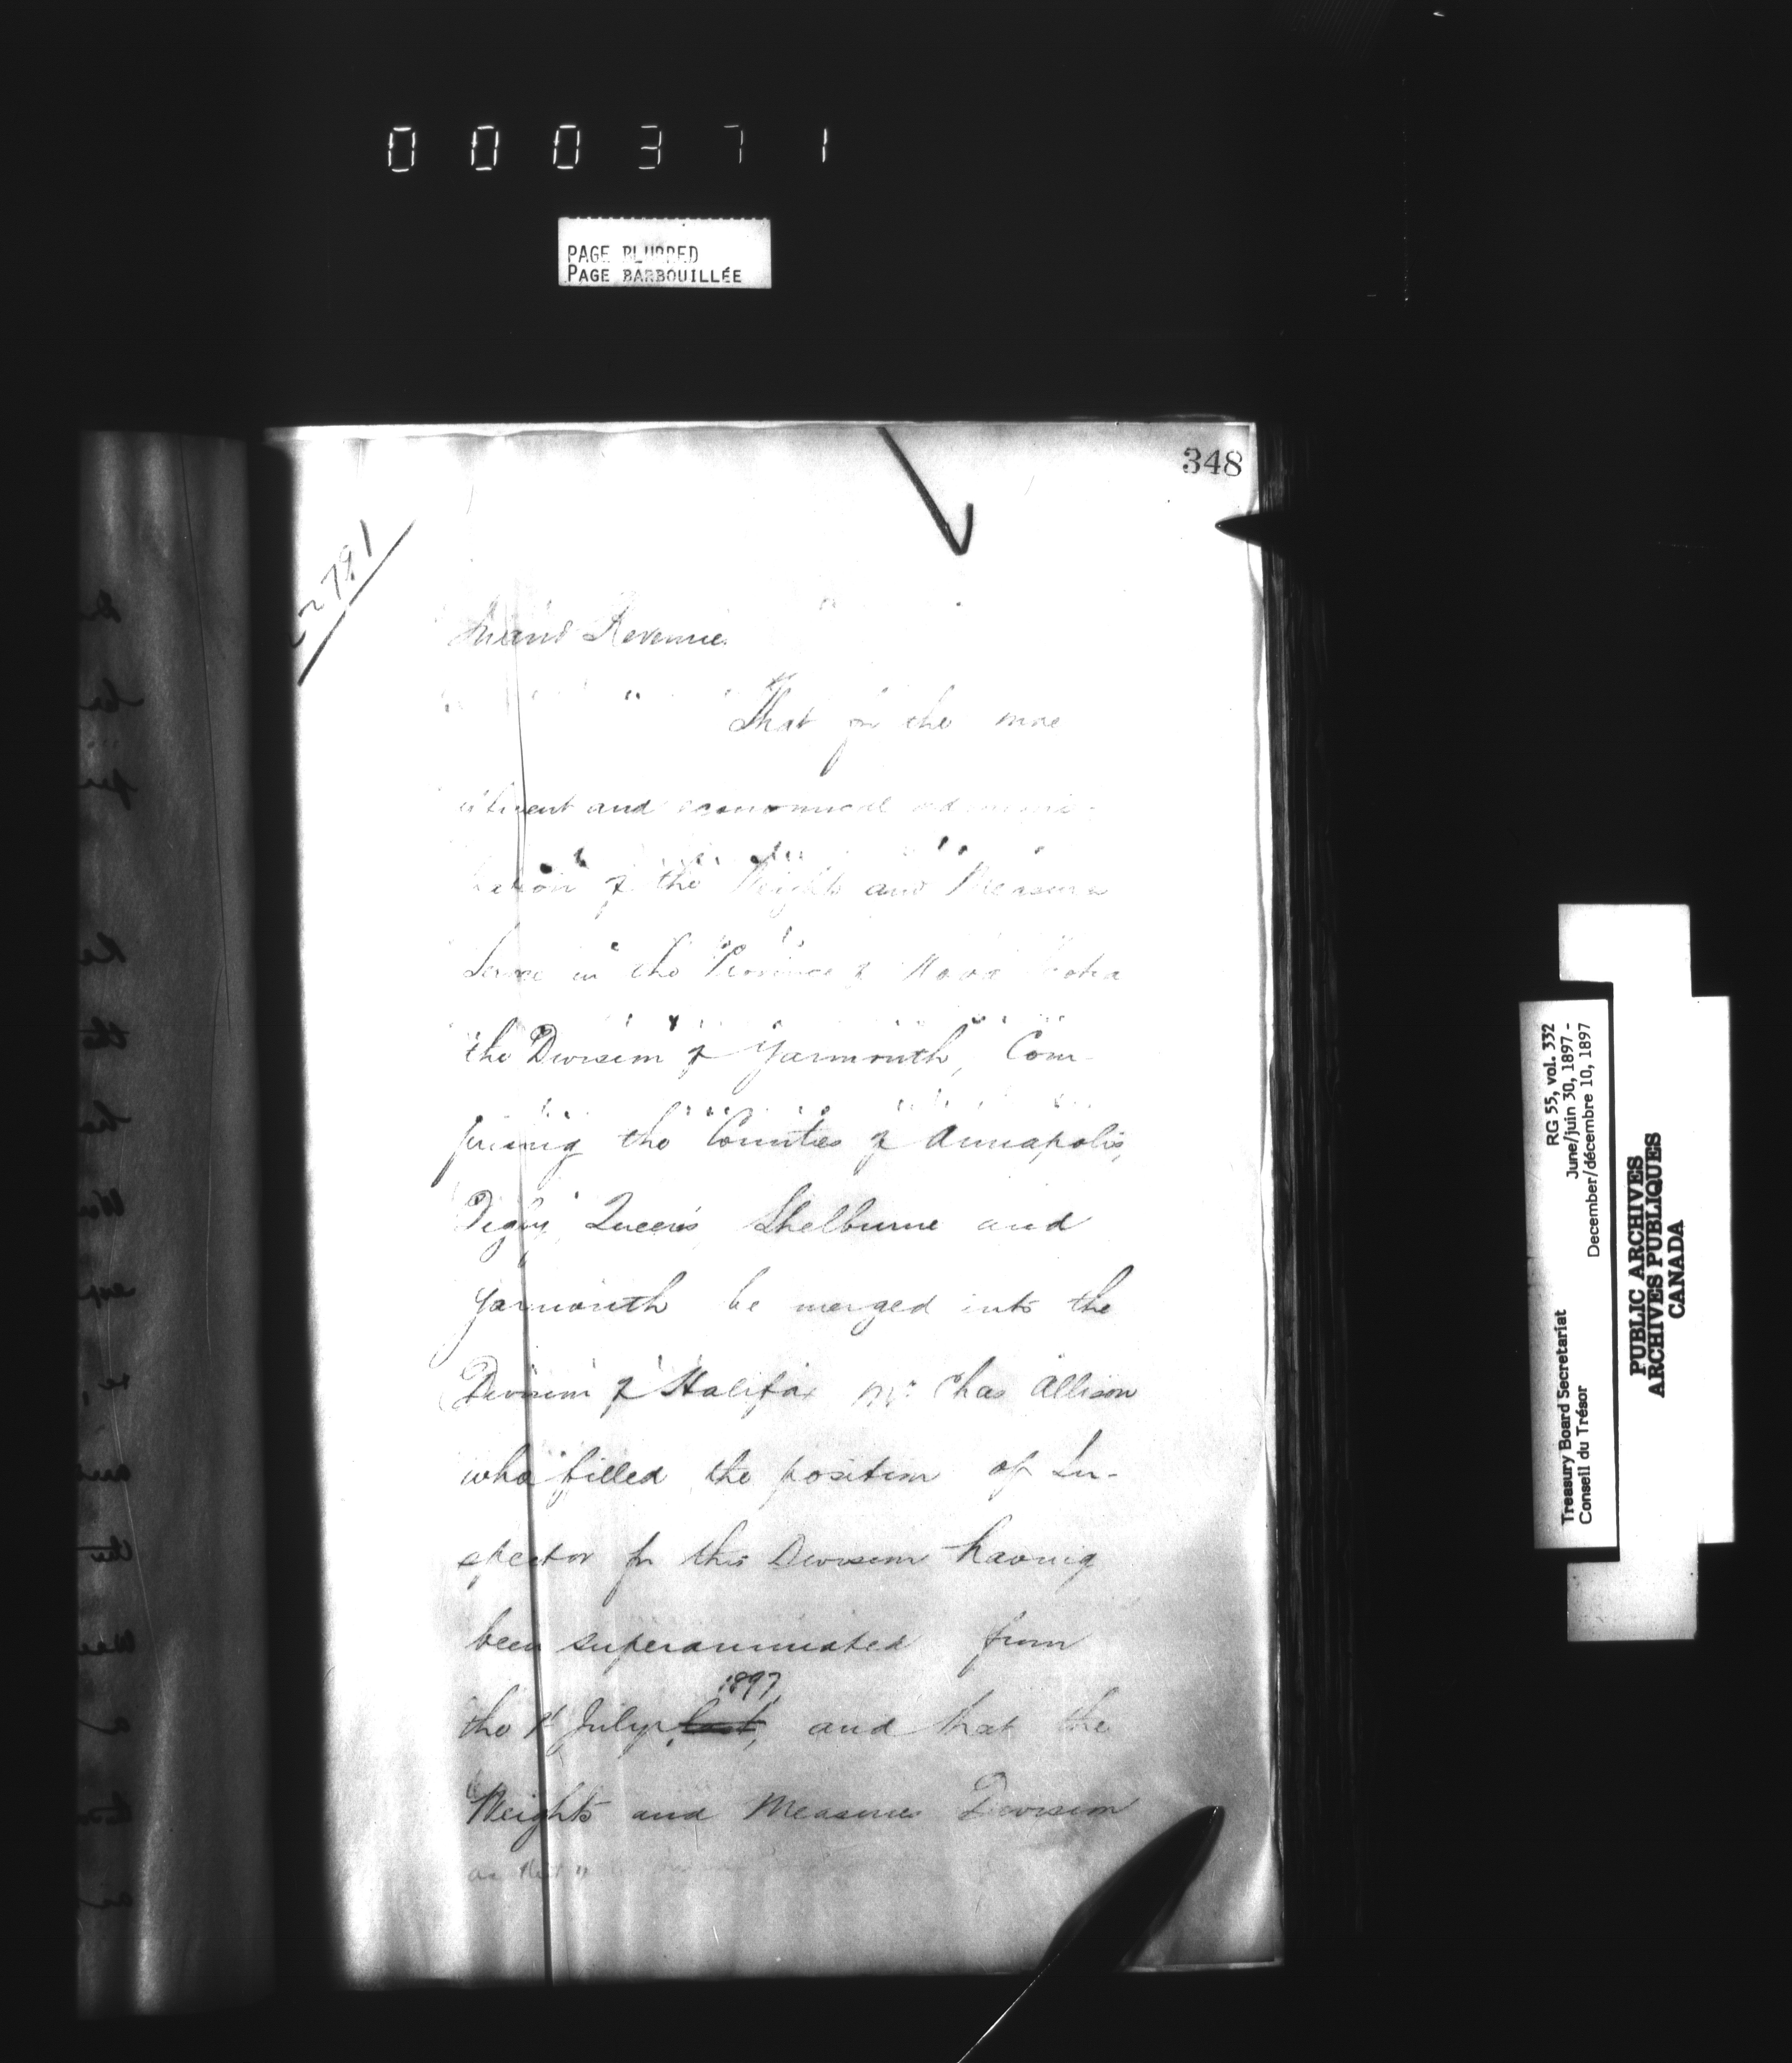 000371
PAGE BLURRED
PAGE BARBOUILLÉE
348
2791
Inland Revenue.
" That for the more
efficient and economical adminis-
tration of the Weights and Measures
Service in the Province of Nova Scotia
the Division of Yarmouth, Com-
prising the Counties of Annapolis,
Digby, Queen's, Shelburne and
Yarmouth be merged into the
Division of Halifax Mr Chas Allison
who filled the position of In-
spector for this Division having
been superannuated from
1897
the 1st July, last, and that the
Weights and Measures Division
RG 55, vol. 332
June/juin 30, 1897 -
December/décembre 10, 1897
Treasury Board Secretariat
Conseil du Trésor
PUBLIC ARCHIVES
ARCHIVES PUBLIQUES
CANADA